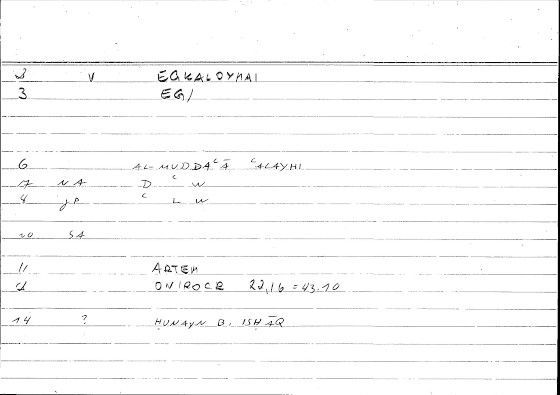 3 V EGKALOYMAI
3 EG/
6 AL-MUDDAʿĀ ʿALAYHI
17 NA D ʿ W
4 JP ʿ L W
20 SA
11 ARTEM
d ONIROCR 22,16 = 43.10
14 ? ḤUNAYN B. ISḤĀQ